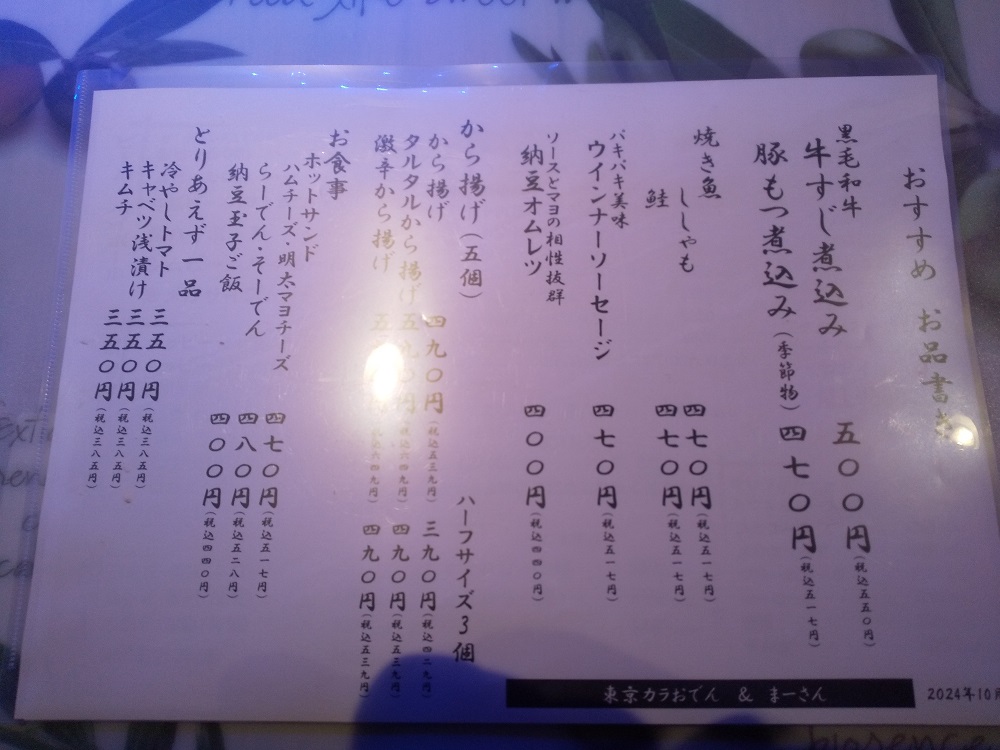 おすすめ お品書き
黒毛和牛
牛すじ煮込み 五〇〇円(税込五五〇円)
豚もつ煮込み(季節物) 四七〇円(税込五一七円)
焼き魚
ししゃも 四七〇円(税込五一七円)
鮭 四七〇円(税込五一七円)
パキパキ美味
ウインナーソーセージ 四七〇円(税込五一七円)
ソースとマヨの相性抜群
納豆オムレツ 四〇〇円(税込四四〇円)
から揚げ(五個) ハーフサイズ3個
から揚げ 四九〇円(税込五三九円) 三九〇円(税込四二九円)
タルタルから揚げ 五九〇円(税込六四九円) 四九〇円(税込五三九円)
激辛から揚げ 五 円 四九〇円(税込五三九円)
お食事
ホットサンド
ハムチーズ・明太マヨチーズ
らーでん・そーでん 四七〇円(税込五一七円)
納豆玉子ご飯 四八〇円(税込五二八円)
四〇〇円(税込四四〇円)
とりあえず一品
冷やしトマト 三五〇円(税込三八五円)
キャベツ浅漬け 三五〇円(税込三八五円)
キムチ 三五〇円(税込三八五円)
東京カラおでん & まーさん
2024年10月